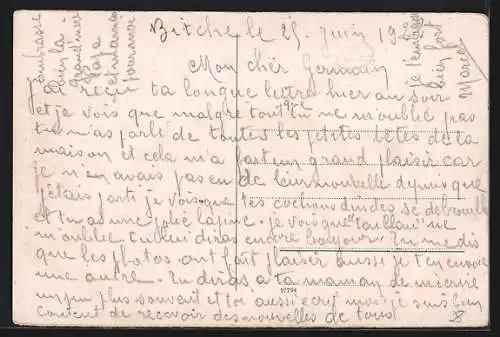 Bitche le 25 juin 19
Mon cher Germain
J'ai reçu ta longue lettre hier au soir
et je vois que malgré tout tu ne m'oublie pas
tu m'as parlé de toutes les petites bêtes de la
maison et cela m'a fait un grand plaisir car
je n'en avais pas eu de leur nouvelle depuis que
j'étais parti je vois que tes cochons dindes se debrouille
et tu as une jolie lapine. je vois que ne
m'oublie tu lui diras encore bonjour. Tu me dis
que les photos ont fait plaisir aussi je t'en envoie
une autre. Tu diras a ta maman de m'ecrire
un peu plus souvent et toi aussi ecris moi je suis bien
content de recevoir des nouvelles de tous
embrasse
pour la
grand mère
papa
et maman
pour moi
je t'embrasse
bien fort
Marcel
17794